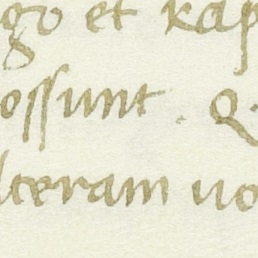 go et kap
ossunt . Q
lteram uo